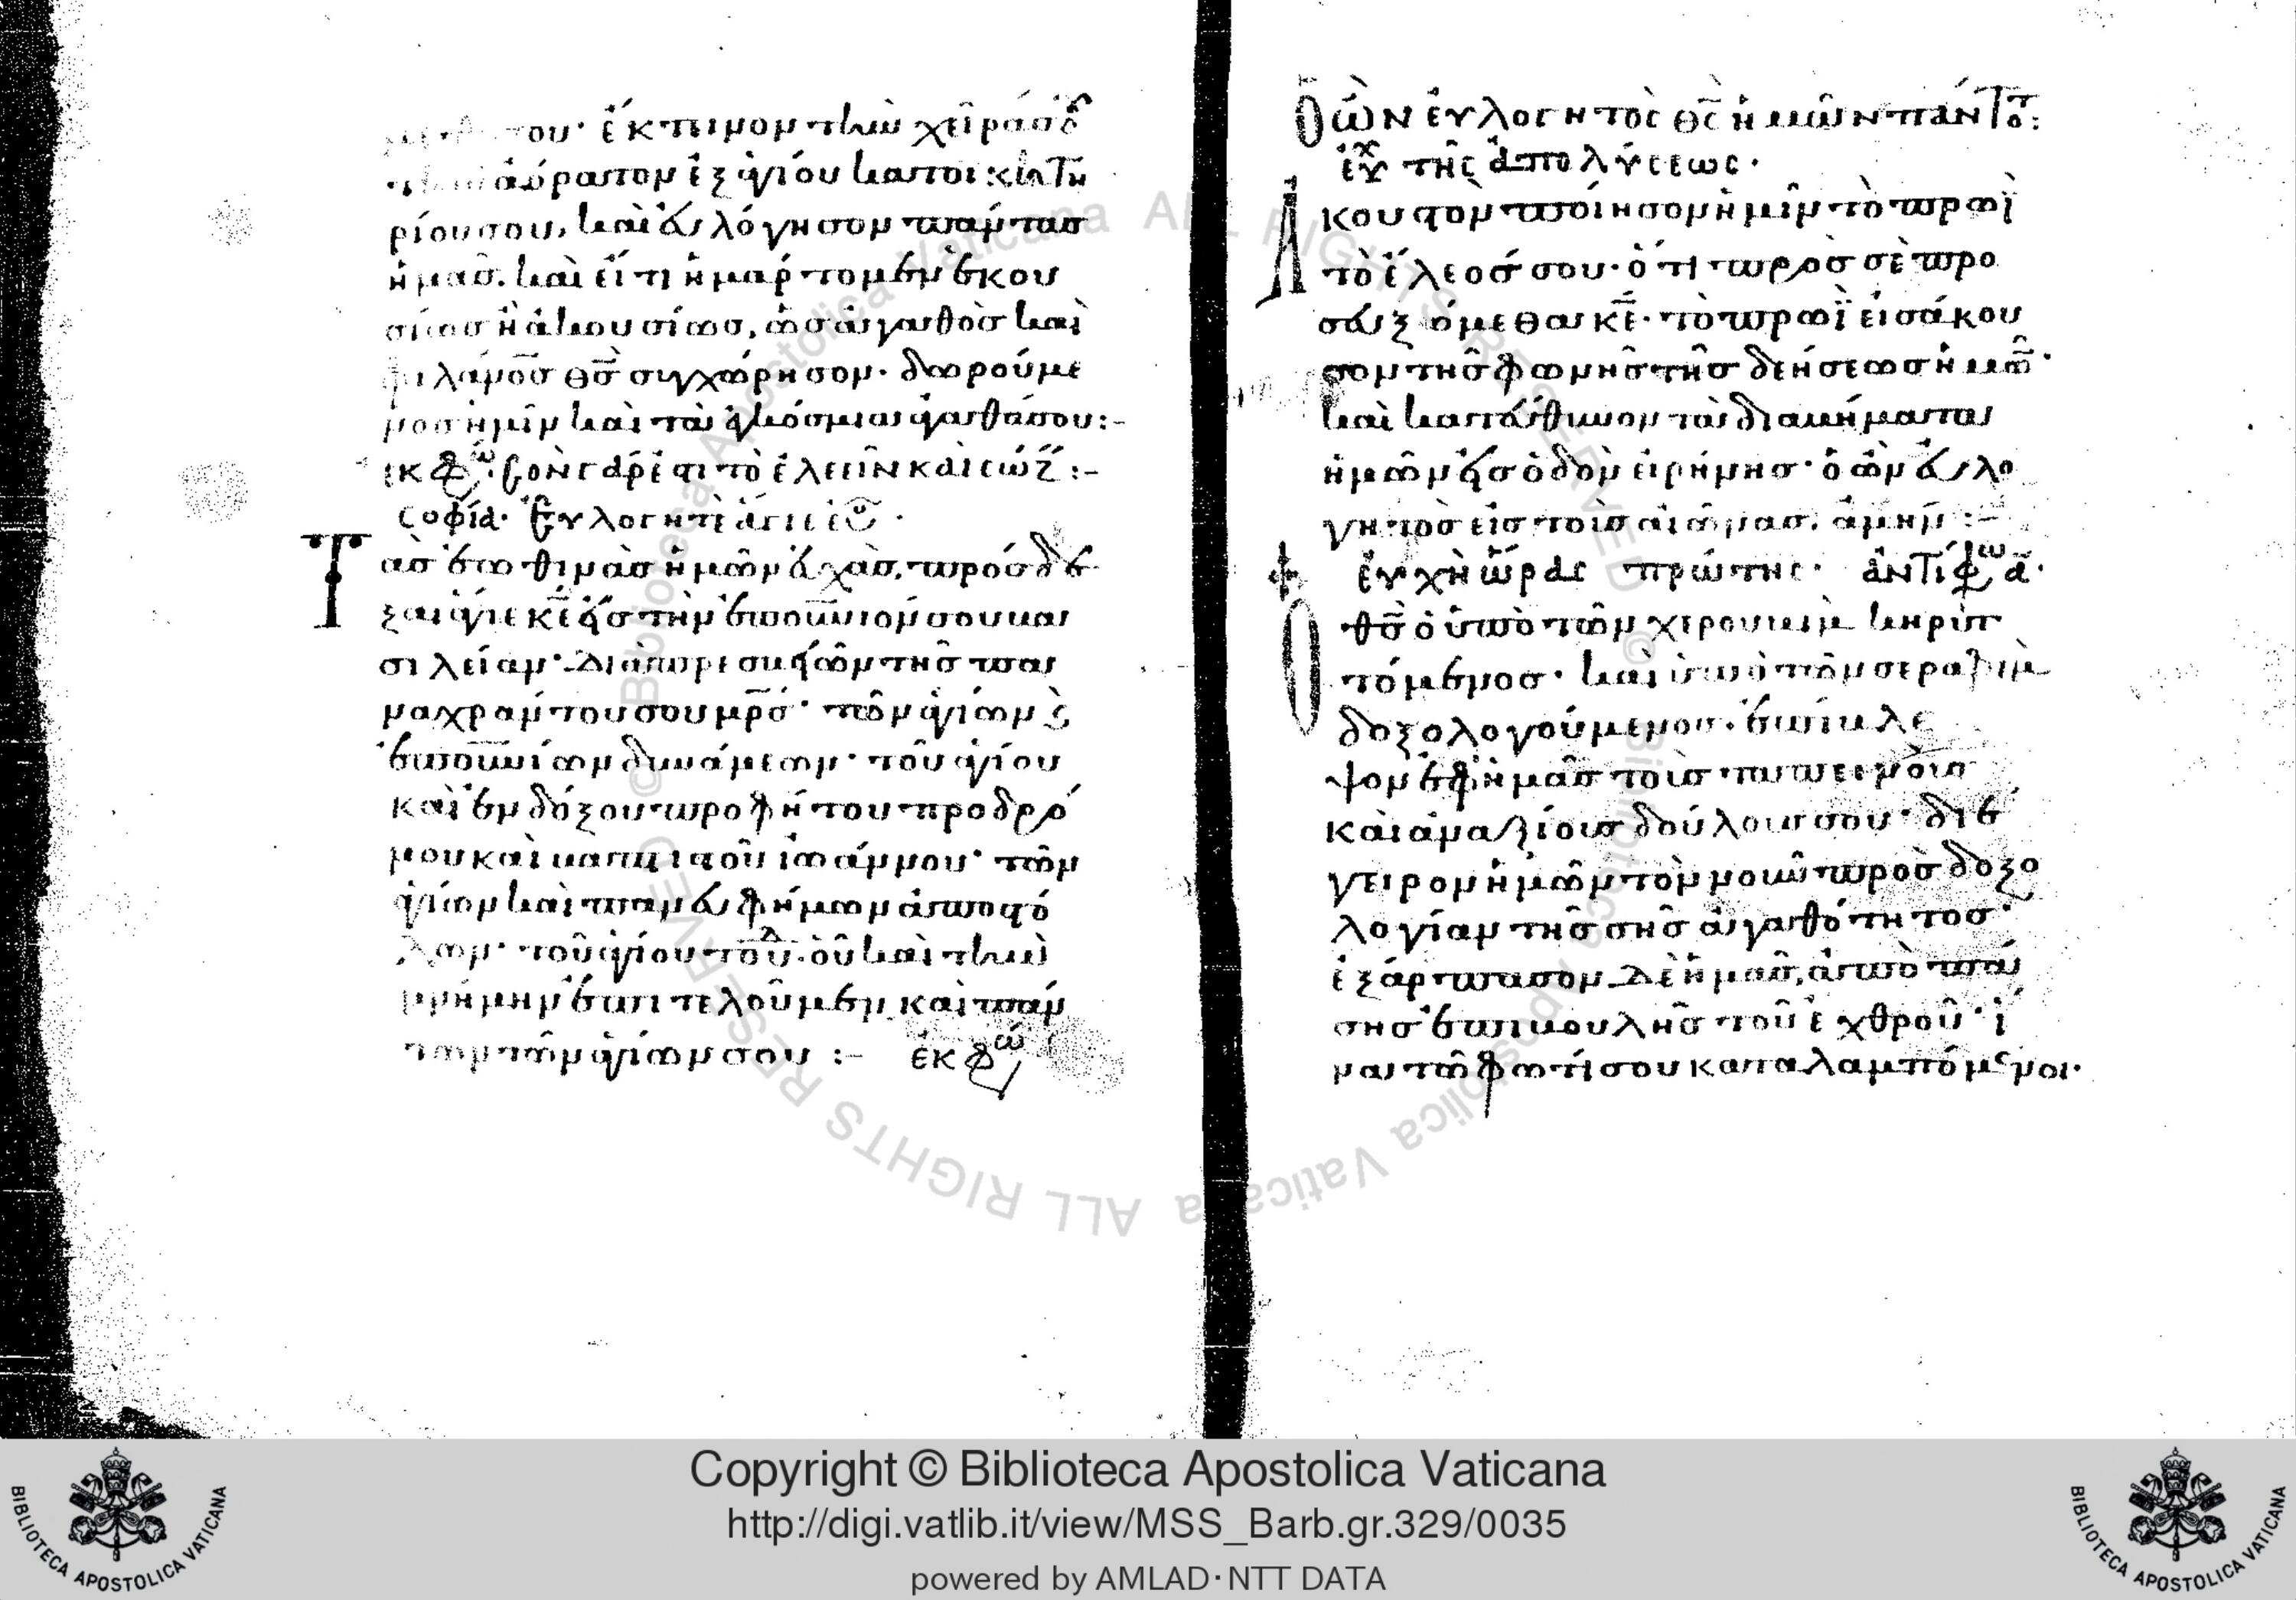 του· ἔκτεινον τὴν χεῖρά σου
τὴν ἀόρατον ἐξ ἁγίου κατοικητη
ρίου σου, καὶ εὐλόγησον πάντας
ἡμᾶς. καὶ εἴ τι ἡμάρτομεν ἑκου
σίως ἢ ἀκουσίως, ὡς ἀγαθὸς καὶ
φιλάνος θς συγχώρησον· δωρούμε
νος ἡμῖν καὶ τὰ ἐγκόσμια ἀγαθά σου:-
ἐκφω· σὸν γάρ ἐστι τὸ ἐλεεῖν καὶ σώζ:-
σοφία· εὐλογητὲ
Τὰς ἑωθινὰς ἡμῶν εὐχὰς, πρόσδε
ξαι ἅγιε κε εἰς τὴν ἐπουνιόν σου βα
σιλείαν· διὰ πρεσβειῶν τῆς πα
ναχράντου σου μρς· τῶν ἁγίων
ἐπουνίων δυνάμεων· τοῦ ἁγίου
καὶ ἐνδόξου προφήτου προδρό
μου καὶ βαπτιστοῦ ἰωάννου· τῶν
ἁγίων καὶ πανευφήμων ἀποστό
λων· τοῦ ἁγίου τοῦ δλ. οὗ καὶ τὴν
μνήμην ἐπιτελοῦμεν καὶ πάν
των τῶν ἁγίων σου :- ἐκφω
ὁ ὢν εὐλογητὸς θς ἡμῶν πάντοτο:
εὐχ τῆς ἀπολύσεως·
Ἀκουστὸν ποίησον ἡμῖν τὸ πρωῒ
τὸ ἔλεός σου· ὅτι πρὸς σὲ προ
σευξόμεθα κε· τὸ πρωῒ εἰσάκου
σον τῆς φωνῆς τῆς δεήσεως ἡμῶ·
καὶ κατεύθυνον τὰ διαβήματα
ἡμῶν εἰς ὁδὸν εἰρήνης· ὁ ὢν εὐλο
γητὸς εἰς τοὺς αἰῶνας. ἀμήν :-
εὐχὴ ὥρας πρώτης· ἀντιφω α·
Ὁ θς ὁ ὑπὸ τῶν χερουβὶμ κηρυτ
τόμενος· καὶ ὑπὸ τῶν σεραφὶμ
δοξολογούμενος· ἐπίβλε
ψον ἐφ ἡμᾶς τοὺς ταπεινοὺς
καὶ ἀναξίους δούλους σου· διέ
γειρον ἡμῶν τὸν νοῦν πρὸς δοξο
λογίαν τῆς σῆς ἀγαθότητος·
ἐξάρπασον δὲ ἡμᾶς, ἀπὸ πά
σης ἐπιβουλῆς τοῦ ἐχθροῦ· ἵ
να τῶ φωτί σου καταλαμπόμενοι·
Copyright © Biblioteca Apostolica Vaticana
http://digi.vatlib.it/view/MSS_Barb.gr.329/0035
powered by AMLAD·NTT DATA
BIBLIOTECA APOSTOLICA VATICANA
BIBLIOTECA APOSTOLICA VATICANA